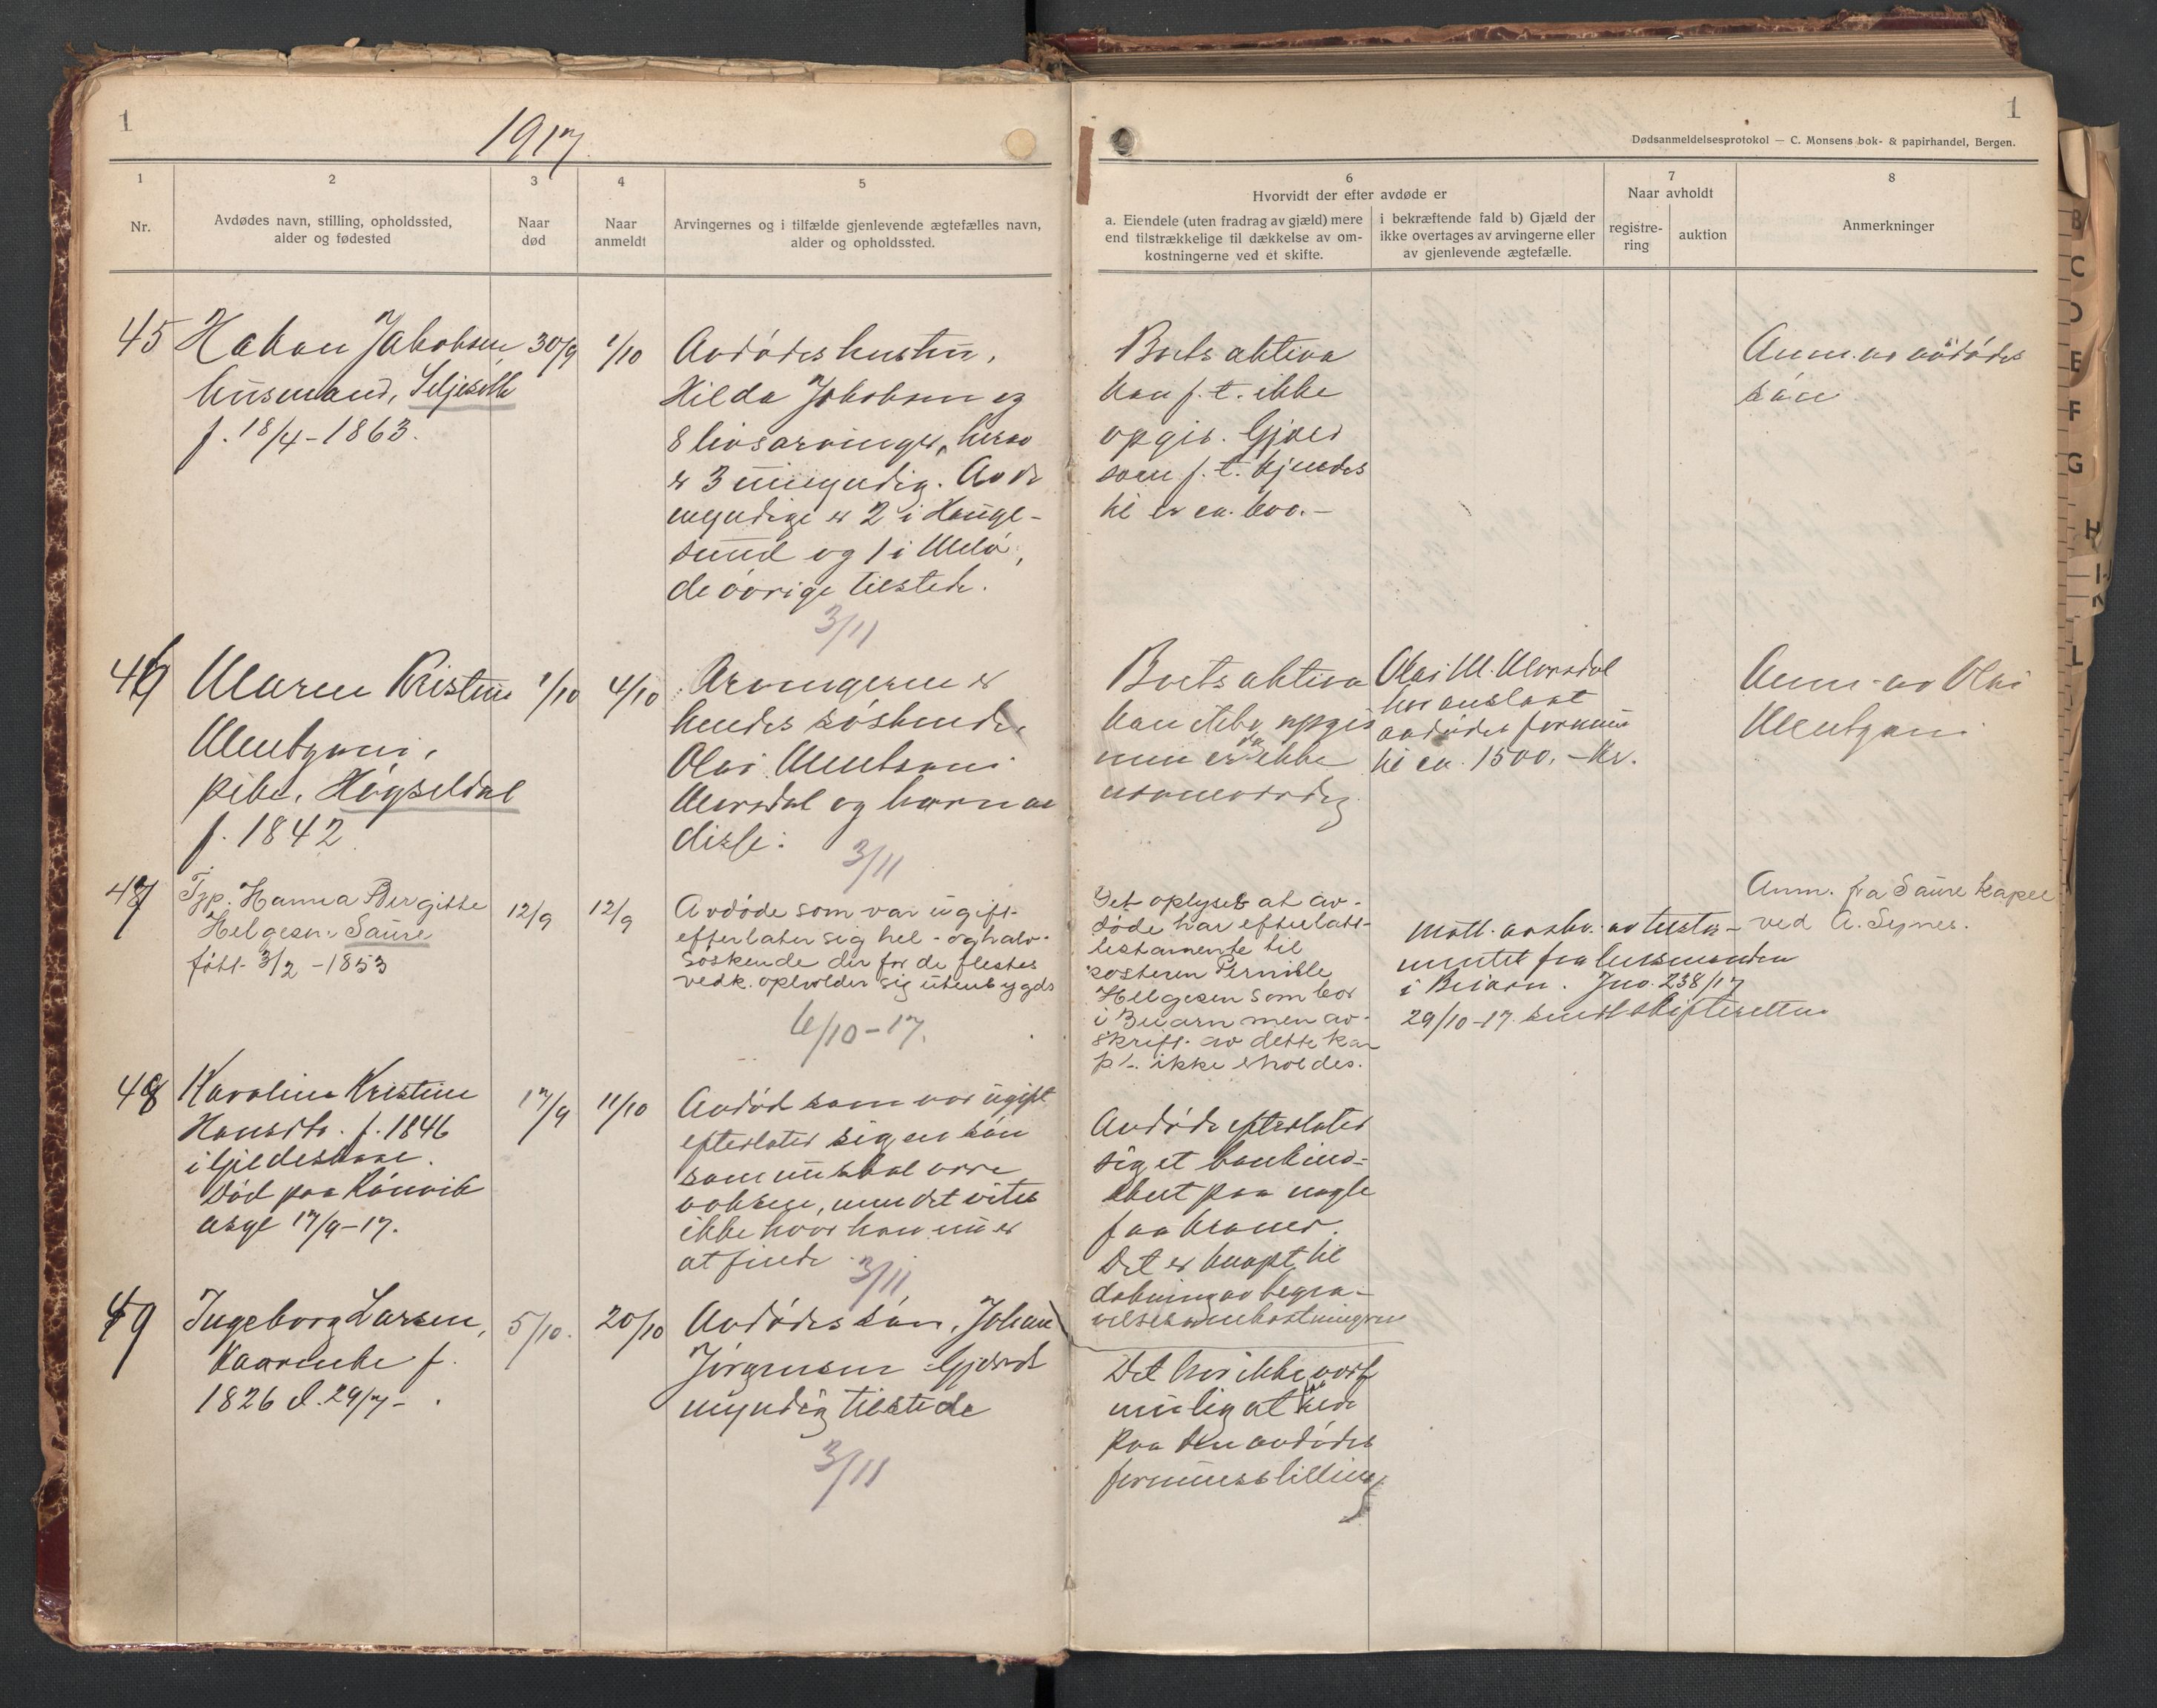 1
1917.
1
Dødsanmeldelsesprotokol — C. Monsens bok- & papirhandel, Bergen.
1
2
3
4
5
6
7
8
Nr.
Avdødes navn, stilling, opholdssted,
alder og fødested
Naar
død
Naar
anmeldt
Arvingernes og i tilfælde gjenlevende ægtefælles navn,
alder og opholdssted.
Hvorvidt der efter avdøde er
a. Eiendele (uten fradrag av gjæld) mere
end tilstrækkelige til dækkelse av om-
kostningerne ved et skifte.
i bekræftende fald b) Gjæld der
ikke overtages av arvingerne eller
av gjenlevende ægtefælle.
Naar avholdt
registre-
ring
auktion
Anmerkninger
45
Hakon Jakobsen
husmand,
f. 18/4-1863.
30/9
1/10
Avdødes hustru,
Hilda Jakobsen og
8 livsarvinger, herav
er 3 umyndig. Av de
myndige er 2 i Hauge-
sund og 1 i Melø,
de øvrige tilstede.
3/11
Boets aktiva
kan f. t. ikke
opgis. Gjæld
som f. t. kjendes
til er ca. 600.-
Anm. av avdødes
søn
46
Maren Kristine
Mentzoni,
pike, Høgseldal
f. 1842
1/10
4/10
Arvingerne er
hendes søskende,
Olai Mentzoni
Morsdal og barn av
disse:
3/11
Boets aktiva
kan ikke opgis
men er da ikke
Olai M. Morsdal
har anslaat
avdødes formue
til ca. 1500.- kr.
Anm. av Olai
Mentzoni
47
Tjp. Hanna Bergitte
Helgesen, Saure
født 3/2-1853
12/9
12/9
Avdøde som var ugift
efterlater sig hel- og halv-
søskende der for de flestes
vedk. opholder sig utenbygds
6/10-17.
Det oplyses at av-
døde har efterlatt
testamente til
søsteren Pernille
Helgesen som bor
i Beiarn men av-
skrift av dette kan
p.t. ikke erholdes.
Mott. avskr. av testa-
mentet fra lensmanden
i Beiarn. Jno. 238/17
29/10-17 sendt skifteretten
Anm. fra Saure kapel
ved A. Synes.
48
Karoline Kristine
Hansdtr. f. 1846
i Gildeskaal.
Død paa Rønvik
asyl 17/9-17.
17/9
11/10
Avdød som var ugift
efterlater sig en søn
som nu skal være
voksen, men det vites
ikke hvor han nu er
at finde
3/11
Avdøde efterlater
sig et bankind-
skut paa nogle
faa kroner.
Det er knapt til
dækning av begra-
velsesomkostningerne
49
Ingeborg Larsen,
f.
1826 d. 29/7-
5/10.
20/10
Avdødes søn, Johan
Jørgensen
myndig tilstede
3/11
Det har ikke vært
mulig at faa rede
paa den avdødes
formuesstilling
B
C
D
E
F
G
H
I
K
L